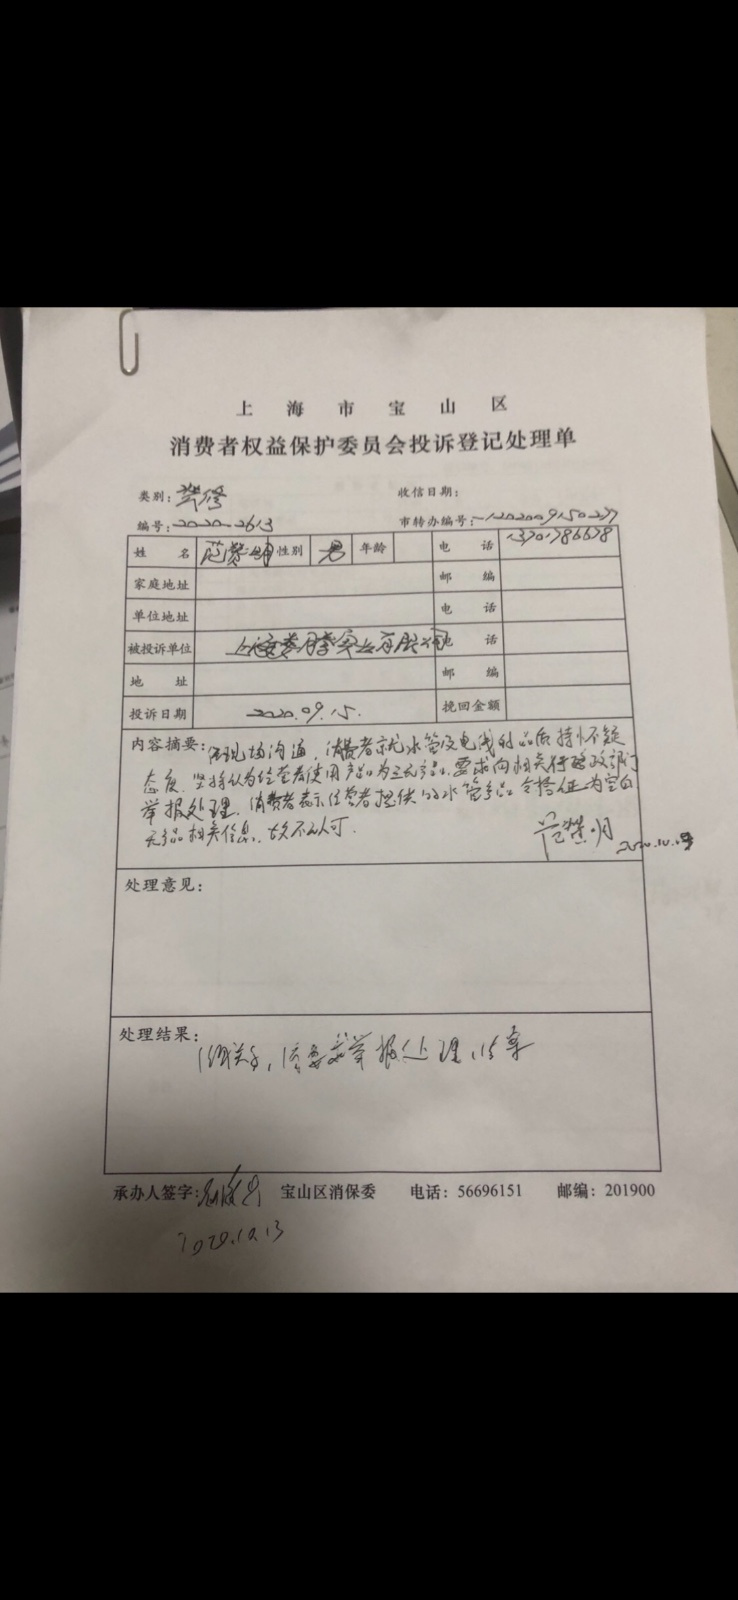 上海市宝山区
消费者权益保护委员会投诉登记处理单
类别： 装修 收信日期：
编号：2020-2613 市转办编号：-1202009150237
姓名 范 明 性别 男 年龄 电话
家庭地址 邮编
单位地址 电话
被投诉单位 上海 实业有限公司 电话
地址 邮编
投诉日期 2020.09.15. 挽回金额
内容摘要：经现场沟通，消费者就水管及电线的品质持怀疑
态度，坚持认为经营者使用产品为三无产品，要求向相关行政部门
举报处理。消费者表示经营者提供的水管产品合格证为空白
无产品相关信息。故不认可.
范 明 2020.10.
处理意见：
处理结果：
举报处理，结案
承办人签字： 宝山区消保委 电话：56696151 邮编：201900
2020.10.13